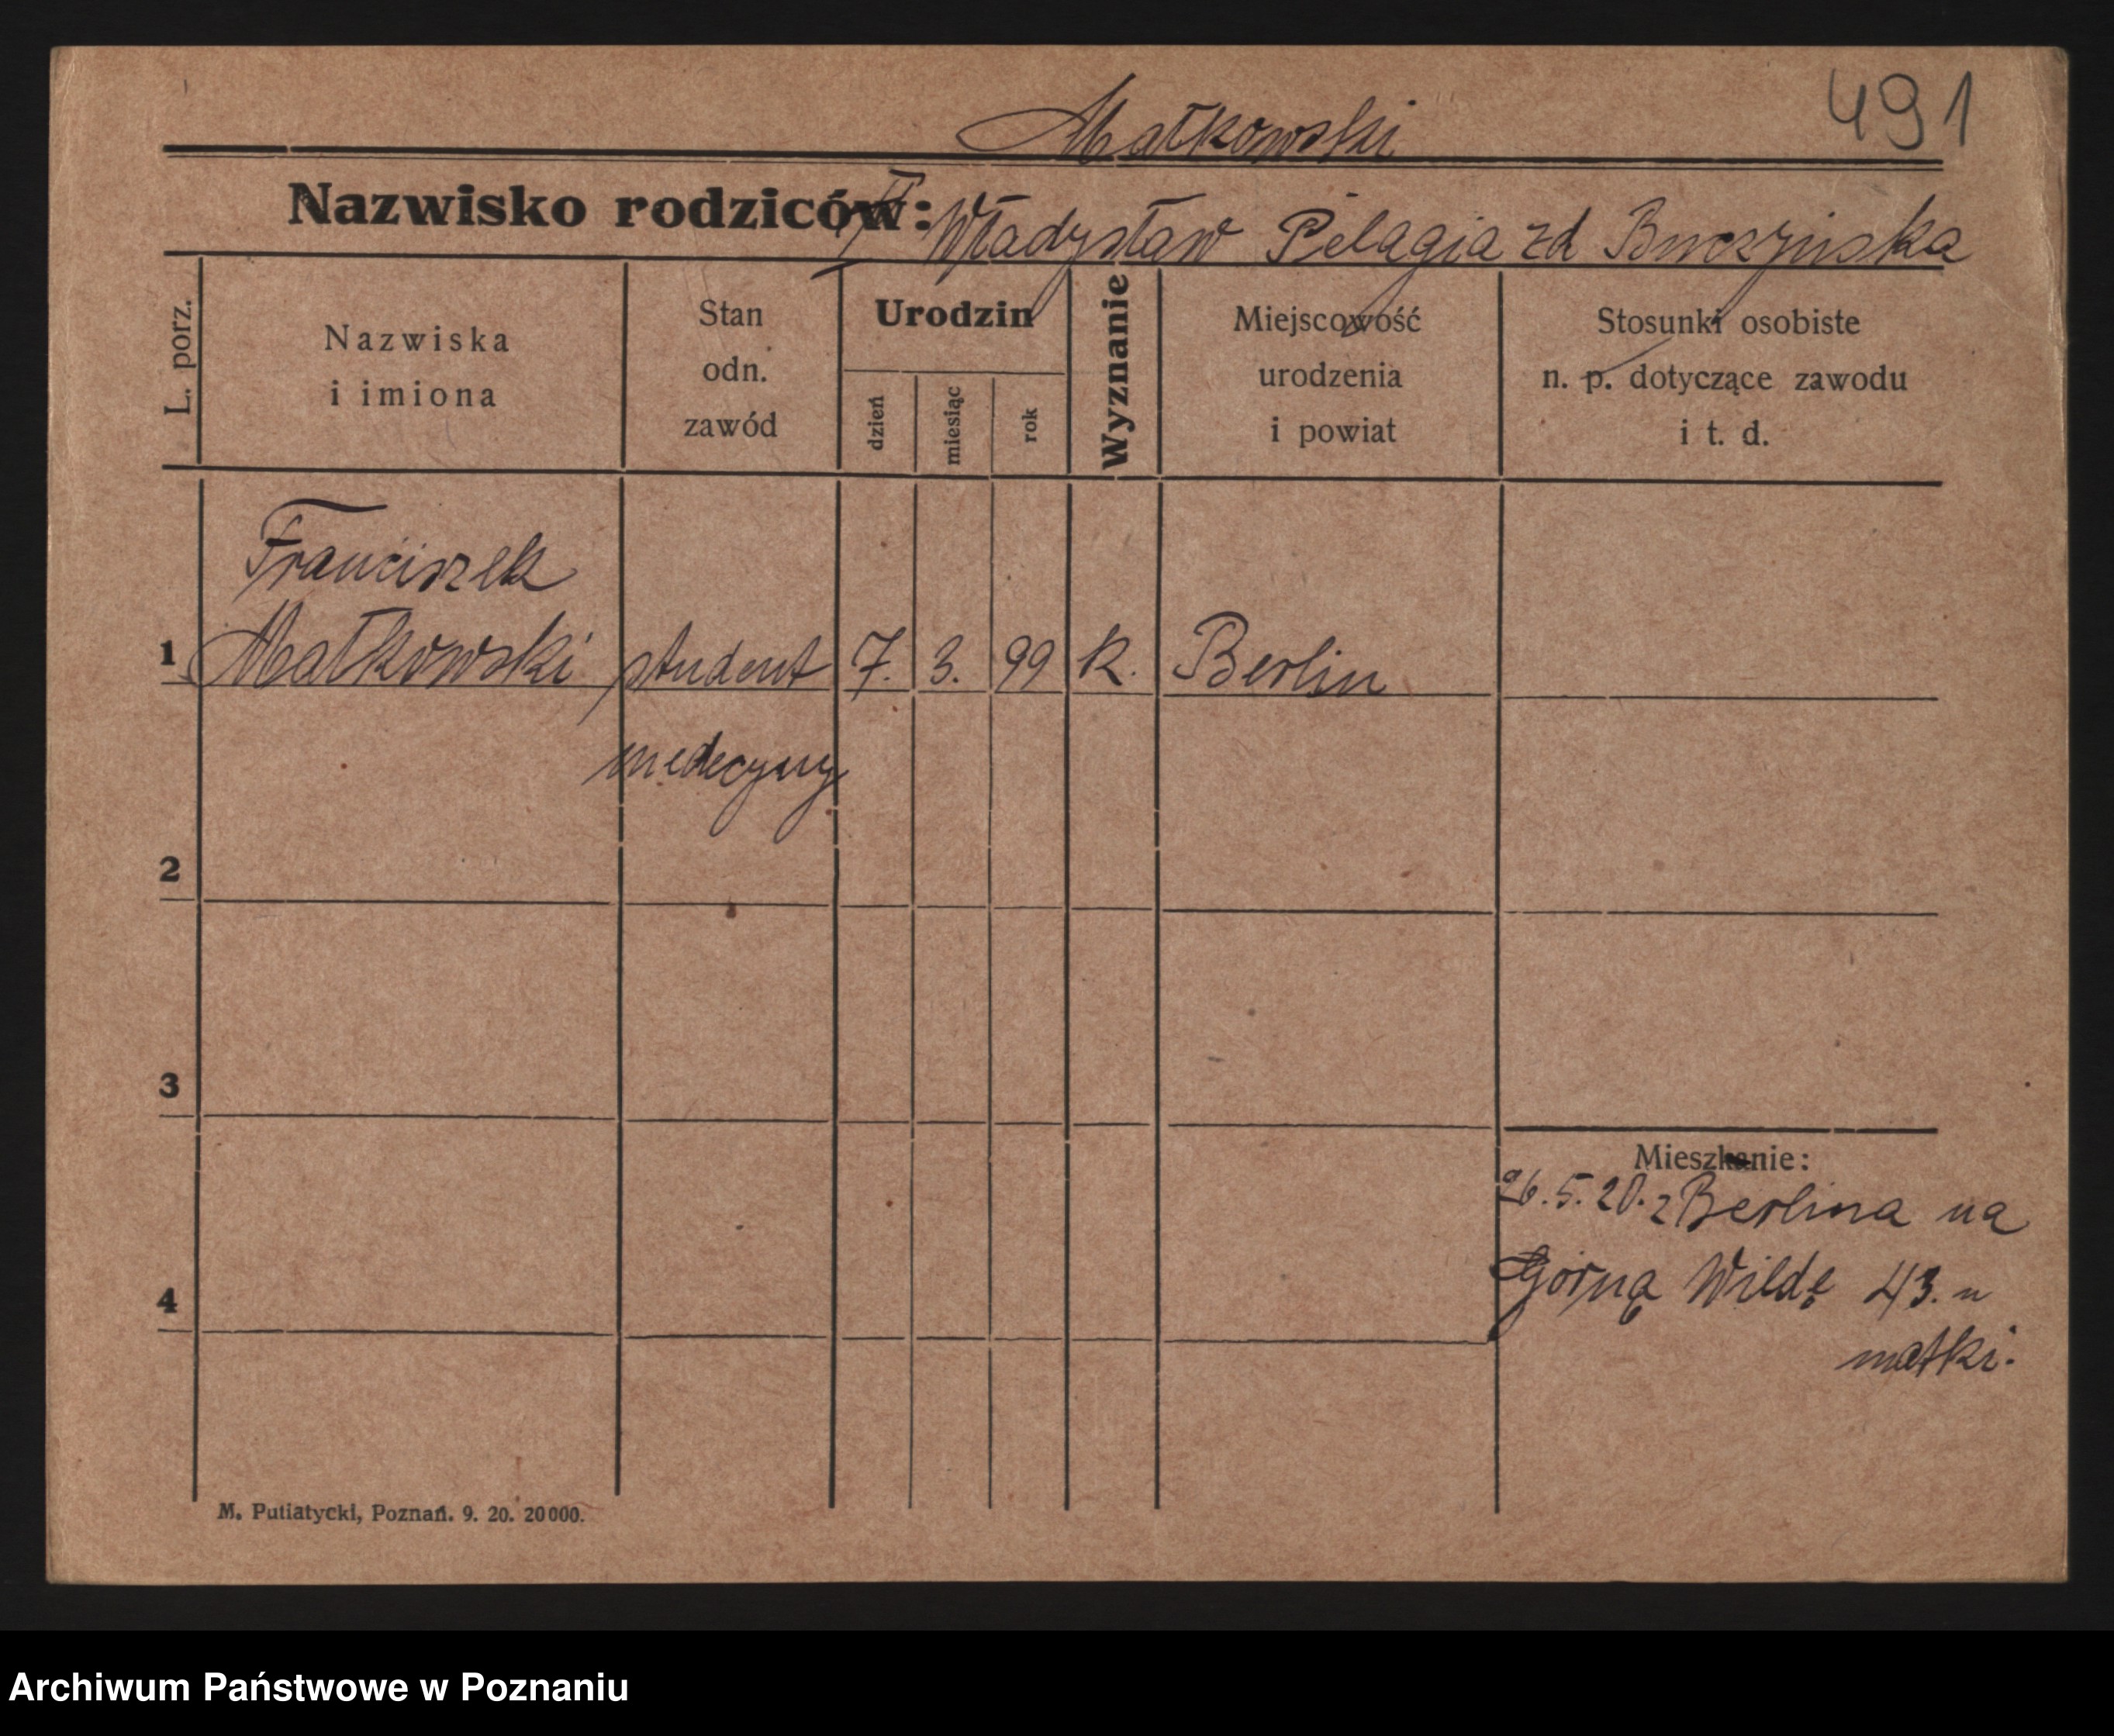 491
Małkowski
Nazwisko rodziców: Władysław Pelagia zd Buczyńska
L. porz.
Nazwiska
i imiona
Stan
odn.
zawód
Urodzin
dzień
miesiąc
rok
Wyznanie
Miejscowość
urodzenia
i powiat
Stosunki osobiste
n. p. dotyczące zawodu
i t. d.
Franciszek
1 Małkowski student 7. 3. 99 k. Berlin
medecyny
2
3
Mieszkanie:
26.5.20. z Berlina na
4 Górną Wildę 43. u
matki.
M. Putiatycki, Poznań. 9. 20. 20000.
Archiwum Państwowe w Poznaniu